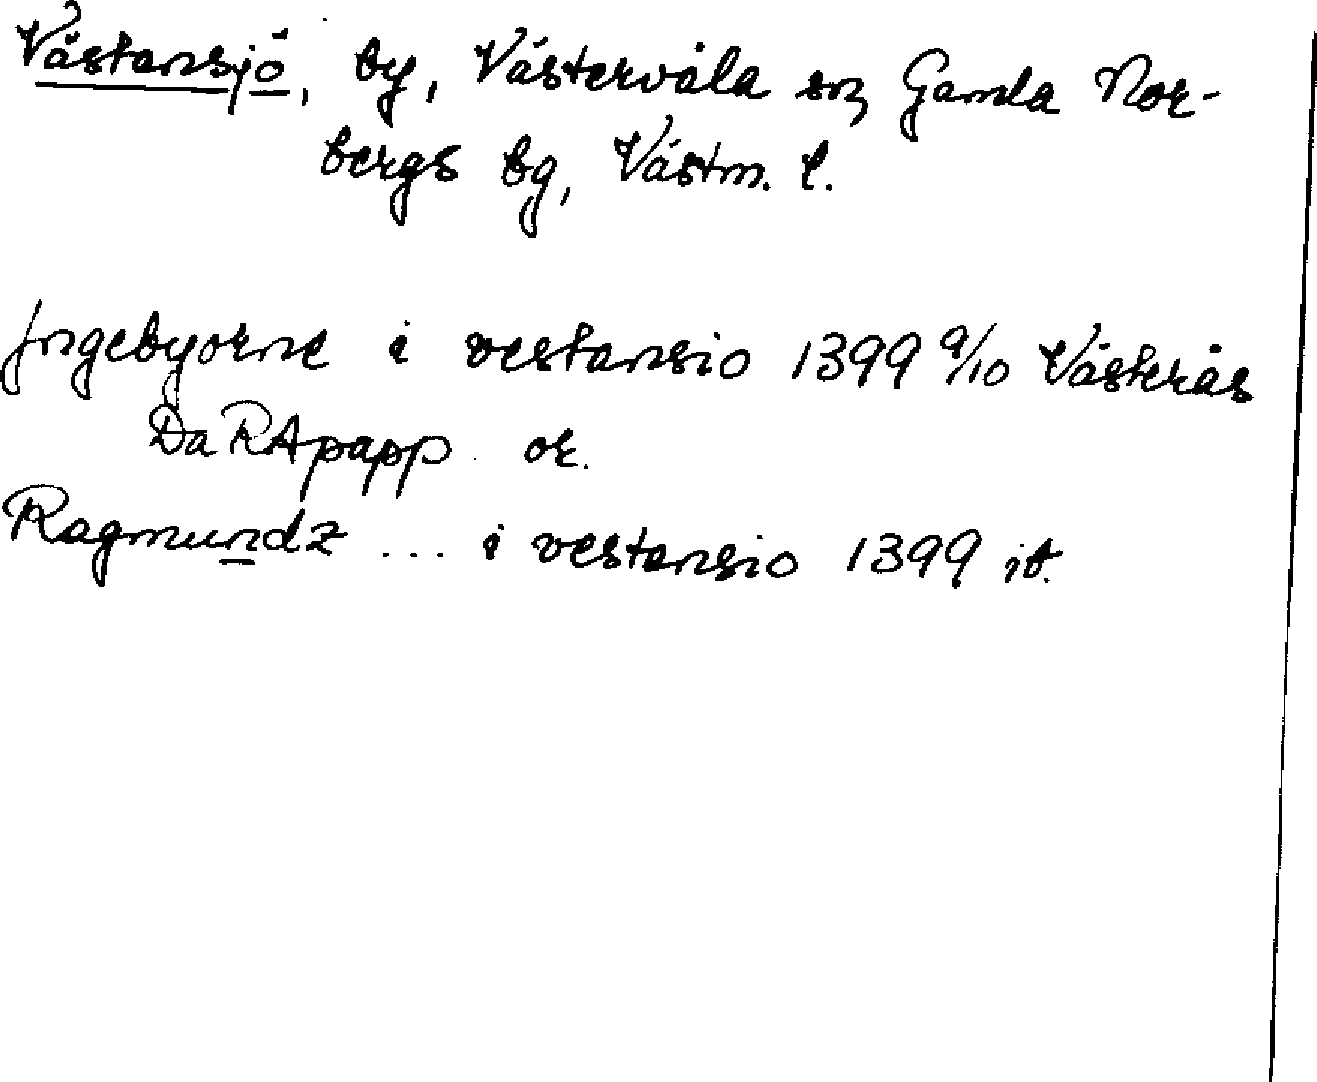 Västansjö, by, Västervåla sn, Gamla Nor-
bergs bg, Västm. l.
Jngebyorne i vestansio 1399 9/10 Västerås
Da RApapp or.
Ragmundz ... i vestansio 1399 ib.